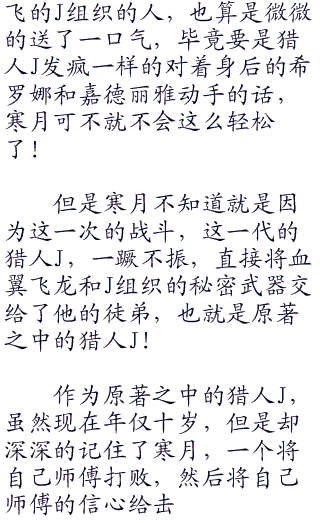 飞的J组织的人，也算是微微
的送了一口气，毕竟要是猎
人J发疯一样的对着身后的希
罗娜和嘉德丽雅动手的话，
寒月可不就不会这么轻松
了！
但是寒月不知道就是因
为这一次的战斗，这一代的
猎人J，一蹶不振，直接将血
翼飞龙和J组织的秘密武器交
给了他的徒弟，也就是原著
之中的猎人J！
作为原著之中的猎人J，
虽然现在年仅十岁，但是却
深深的记住了寒月，一个将
自己师傅打败，然后将自己
师傅的信心给击